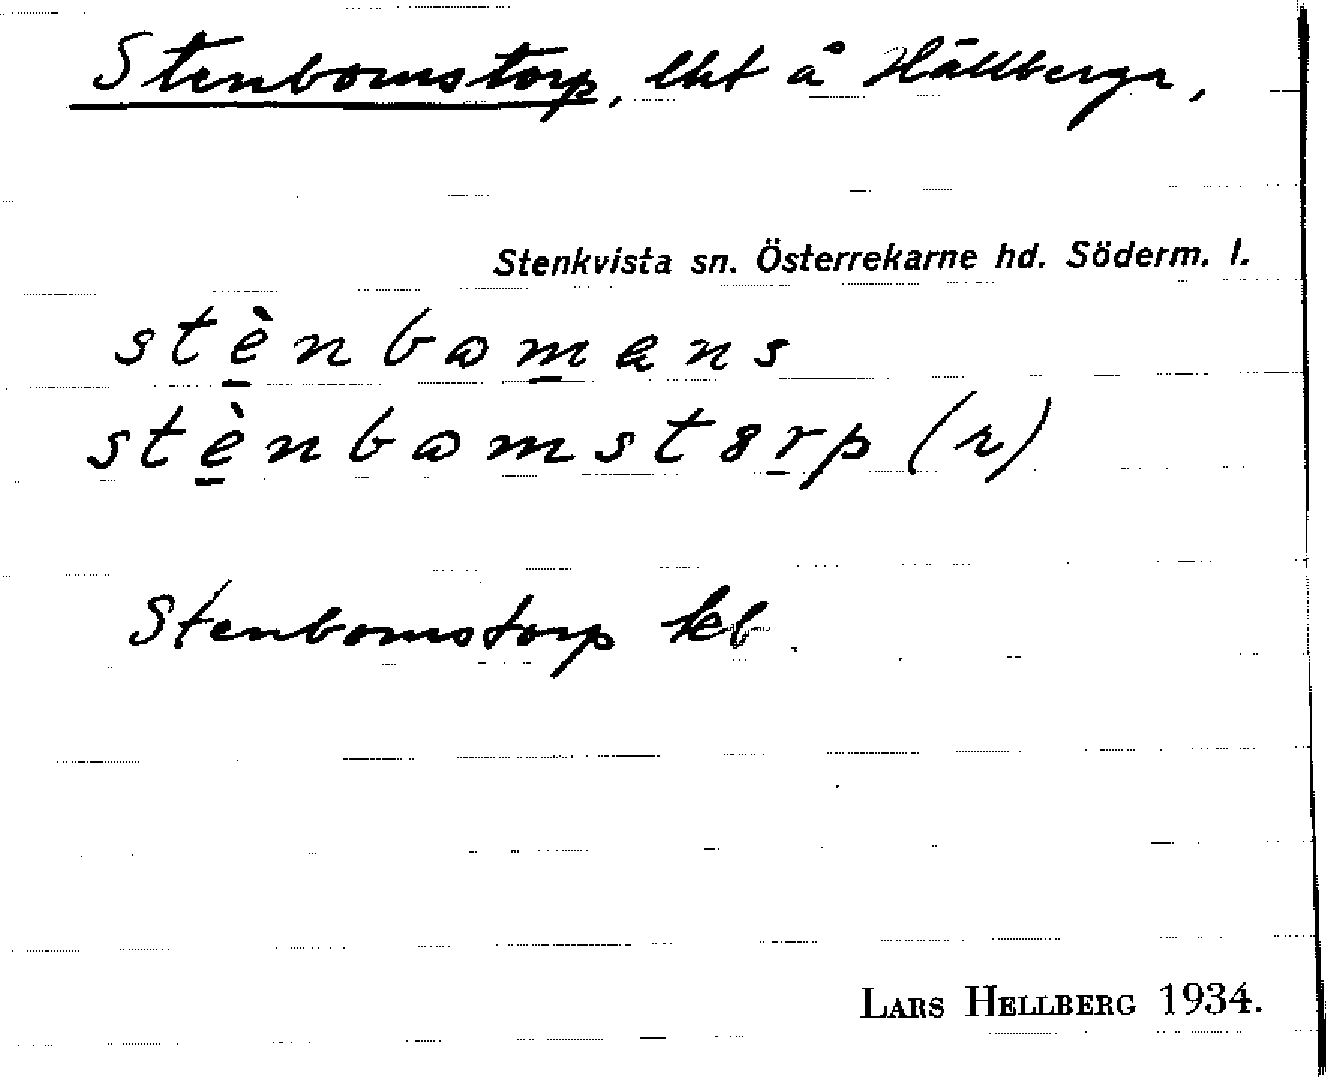 Stenbomstorp, lht å Hällberga,
Stenkvista sn. Österrekarne hd. Söderm. l.
stènbωmans
stènbωmstɤrp (r)
Stenbomstorp kb.
LARS HELLBERG 1934.